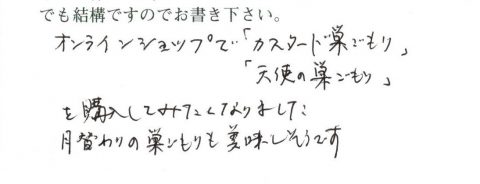 でも結構ですのでお書き下さい。
オンラインショップで「カスタード巣ごもり」
「天使の巣ごもり」
を購入してみたくなりました
月替わりの巣ごもりも美味しそうです